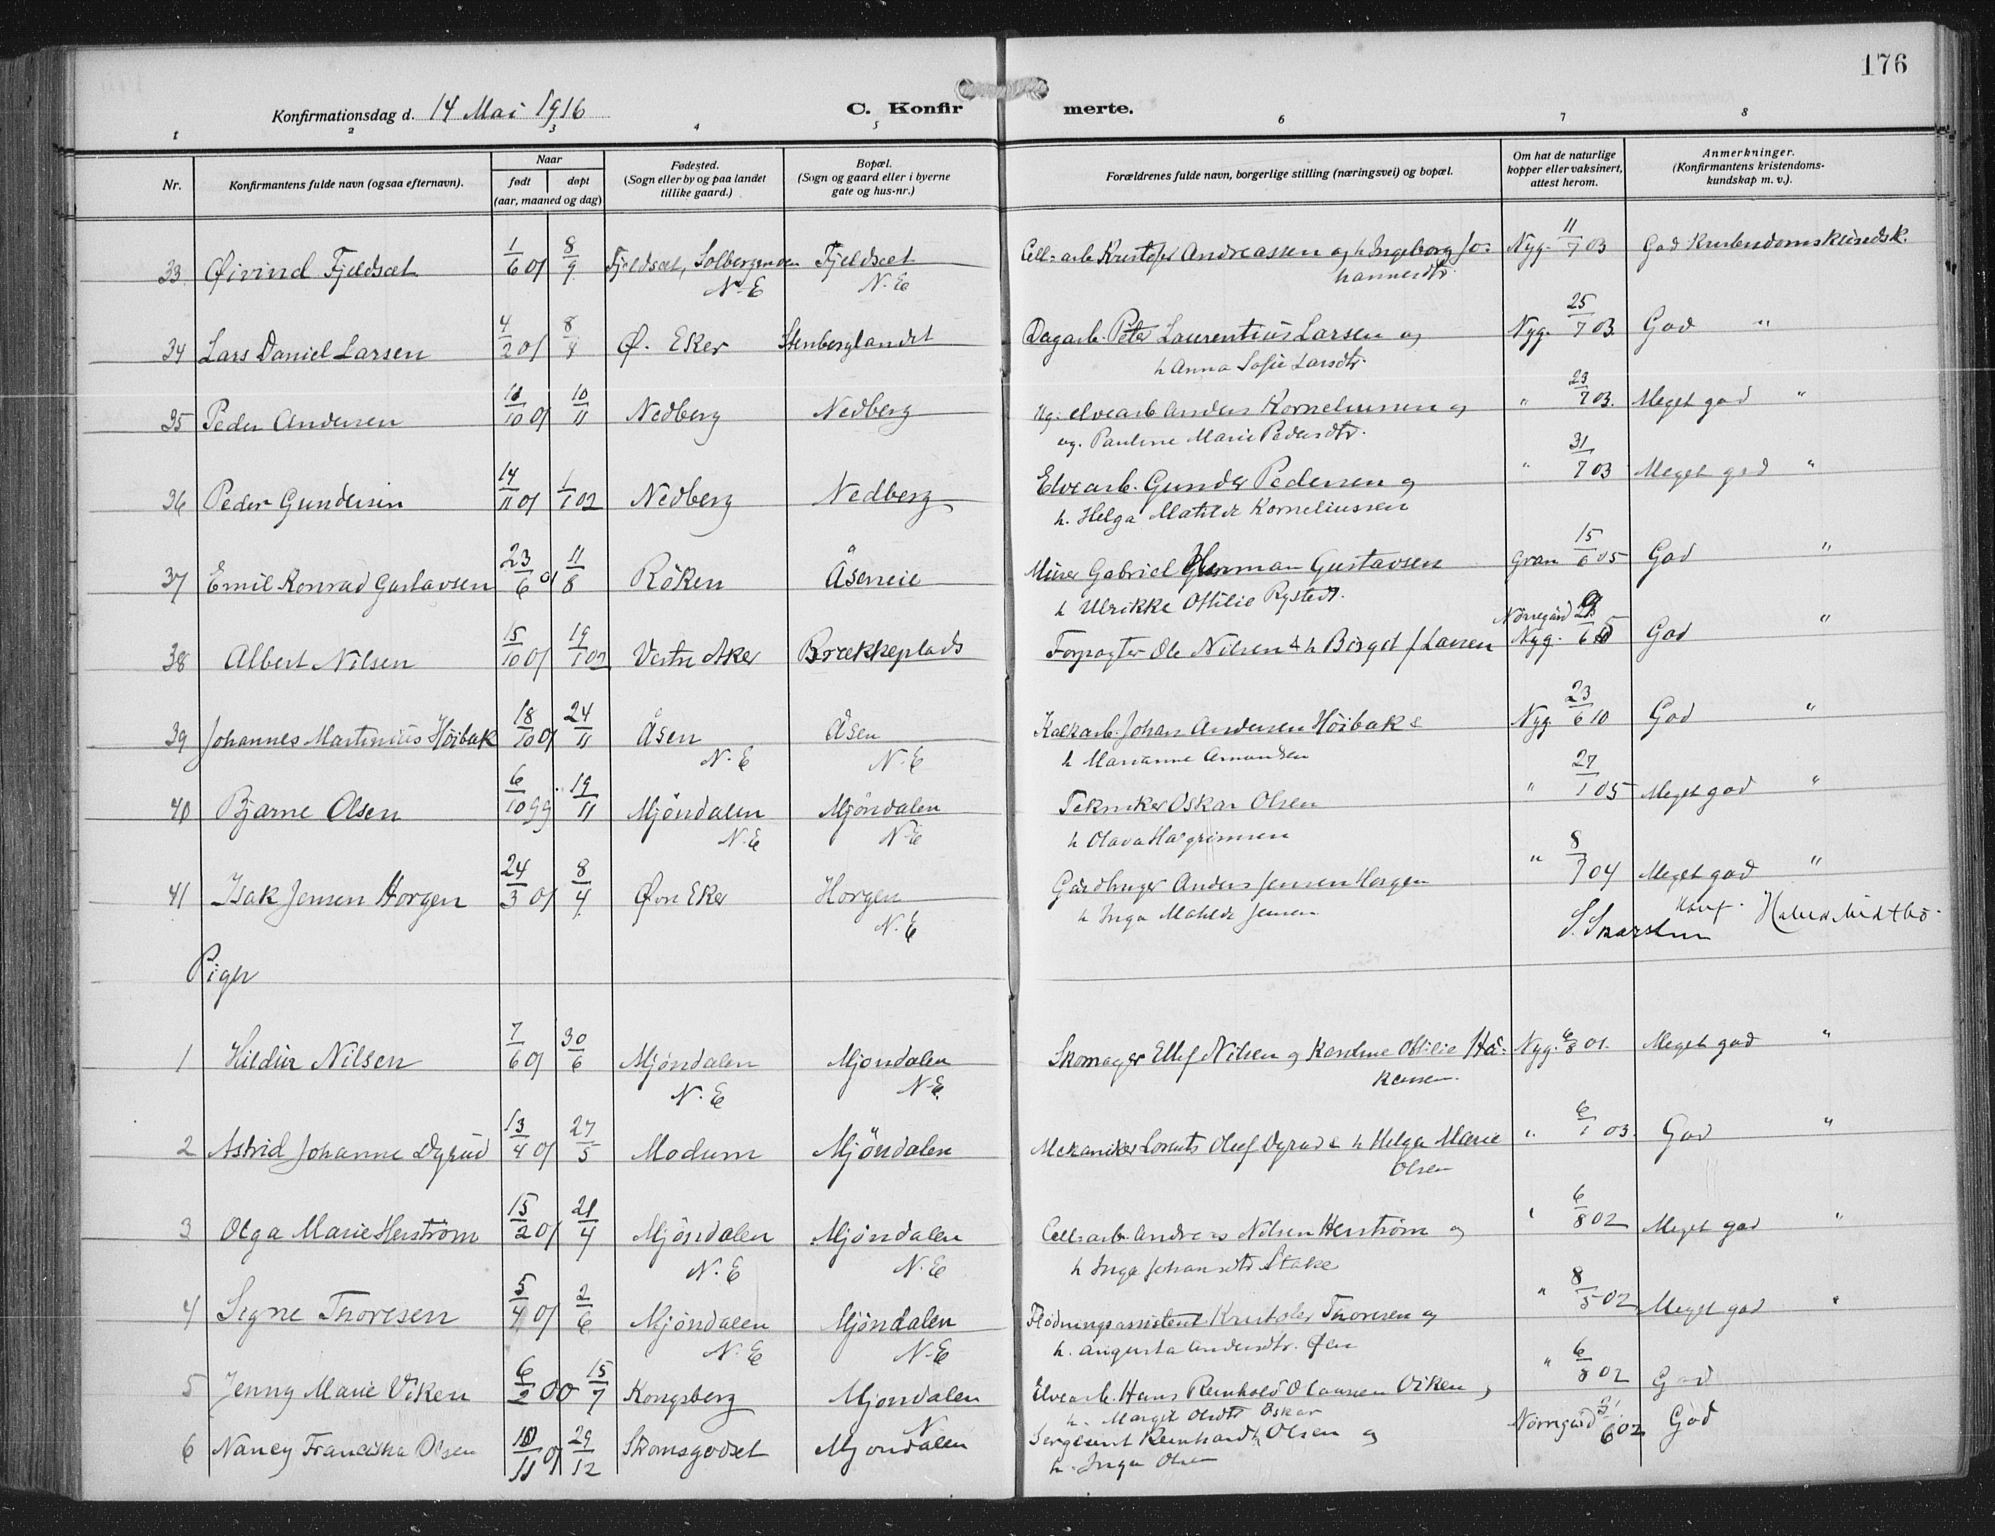 176
Konfirmationsdag d. 14 Mai 1916
C. Konfirmerte.
1 2 3 4 5 6 7 8
Nr.
Konfirmantens fulde navn (ogsaa efternavn).
Naar
født
døpt
(aar, maaned og dag)
Fødested.
(Sogn eller by og paa landet
tillike gaard.)
Bopæl.
(Sogn og gaard eller i byerne
gate og hus-nr.)
Forældrenes fulde navn, borgerlige stilling (næringsvei) og bopæl.
Om hat de naturlige
kopper eller vaksinert,
attest herom.
Anmerkninger.
(Konfirmantens kristendoms-
kundskap m. v.).
33 Øivind Fjeldsæt 1/6 01 8/9 Fjeldsæt, Solbergmoen N.E Fjeldsæt N.E Cell-arb. Kristofer Andreassen og h Ingeborg Jo-
hannesdtr. Nyg. 11/7 03 God Kristendomskundsk.
34 Lars Daniel Larsen 4/2 01 8/4 Ø. Eker Stenberglandet Dagarb. Peter Laurentius Larsen og
h Anna Sofie Larsdtr. Nyg. 25/7 03 God "
35 Peder Andersen 11/10 01 10/11 Nedberg Nedberg Ug. elvearb Anders Korneliussen og
ug. Pauline Marie Pedersdtr. " 23/7 03. Meget god "
36 Peder Gundersen 14/11 01 1/1 02 Nedberg Nedberg Elvearb. Gunder Pedersen og
h. Helga Matilde Korneliussen " 31/7 03 Meget god "
37 Emil Konrad Gustavsen 23/6 01 11/8 Röken Åseneie Miner Gabriel Herman Gustavsen
h Ulrikke Ottilie Rystedt. Gran 15/6 05 God "
38 Albert Nilsen 15/10 01 19/1 02 Vestre Aker Brækkeplads Forpagter Ole Nilsen & h Birget f Larsen Nørregård Nyg. God "
39 Johannes Martinius Höibak 18/10 01 24/11 Åsen N.E Åsen N.E Kalkarb. Johan Andersen Höibak &
h Marianne Amundsen Nyg 23/6 10 God "
40 Bjarne Olsen 6/10 99 19/11 Mjöndalen N.E Mjöndalen N.E Tekniker Oskar Olsen
h Olava Halgrimsen " 27/1 05 Meget god "
41 Isak Jensen Horgen 24/3 01 8/4 Øvre Eker Horgen N.E Gårdbruger Anders Jensen Horgen
h Inga Matilde Jensen " 8/7 04 Meget god "
S. Skarstein
Piger
1 Hildur Nilsen 7/6 01 30/6 Mjöndalen N.E Mjöndalen N.E Skomager Ellef Nilsen og Karoline Ottilie Hå-
kensen. Nyg. 6/8 01. Meget god "
2 Astrid Johanne Dyrud 13/4 01 27/5 Modum Mjöndalen Mekaniker Lorents Oluf Dyrud & h Helga Marie
Olsen " 6/1 03. God "
3 Olga Marie Herström 15/2 01 21/4 Mjöndalen N.E Mjöndalen N.E Cell-arb. Andreas Nilsen Herström og
h Inga Johansdtr Stake " 6/8 02 Meget god "
4 Signe Thoresen 5/4 01 2/6 Mjöndalen N.E Mjöndalen N.E Flödningsassistent Kristofer Thoresen og
h. Augusta Andersdtr. Øen " 8/5 02 Meget god "
5 Jenny Marie Viken 6/2 00 15/7 Kongsberg Mjöndalen N Elvearb. Hans Reinhold Olaussen Viken og
h. Margit Olsdtr Oskar " 6/8 02 God
6 Nancy Franciska Olsen 10/11 01 29/12 Skomsgodset Mjondalen Sergeant Reinhardt Olsen og
h. Inga Olsen Nörregård 3/6 02 God